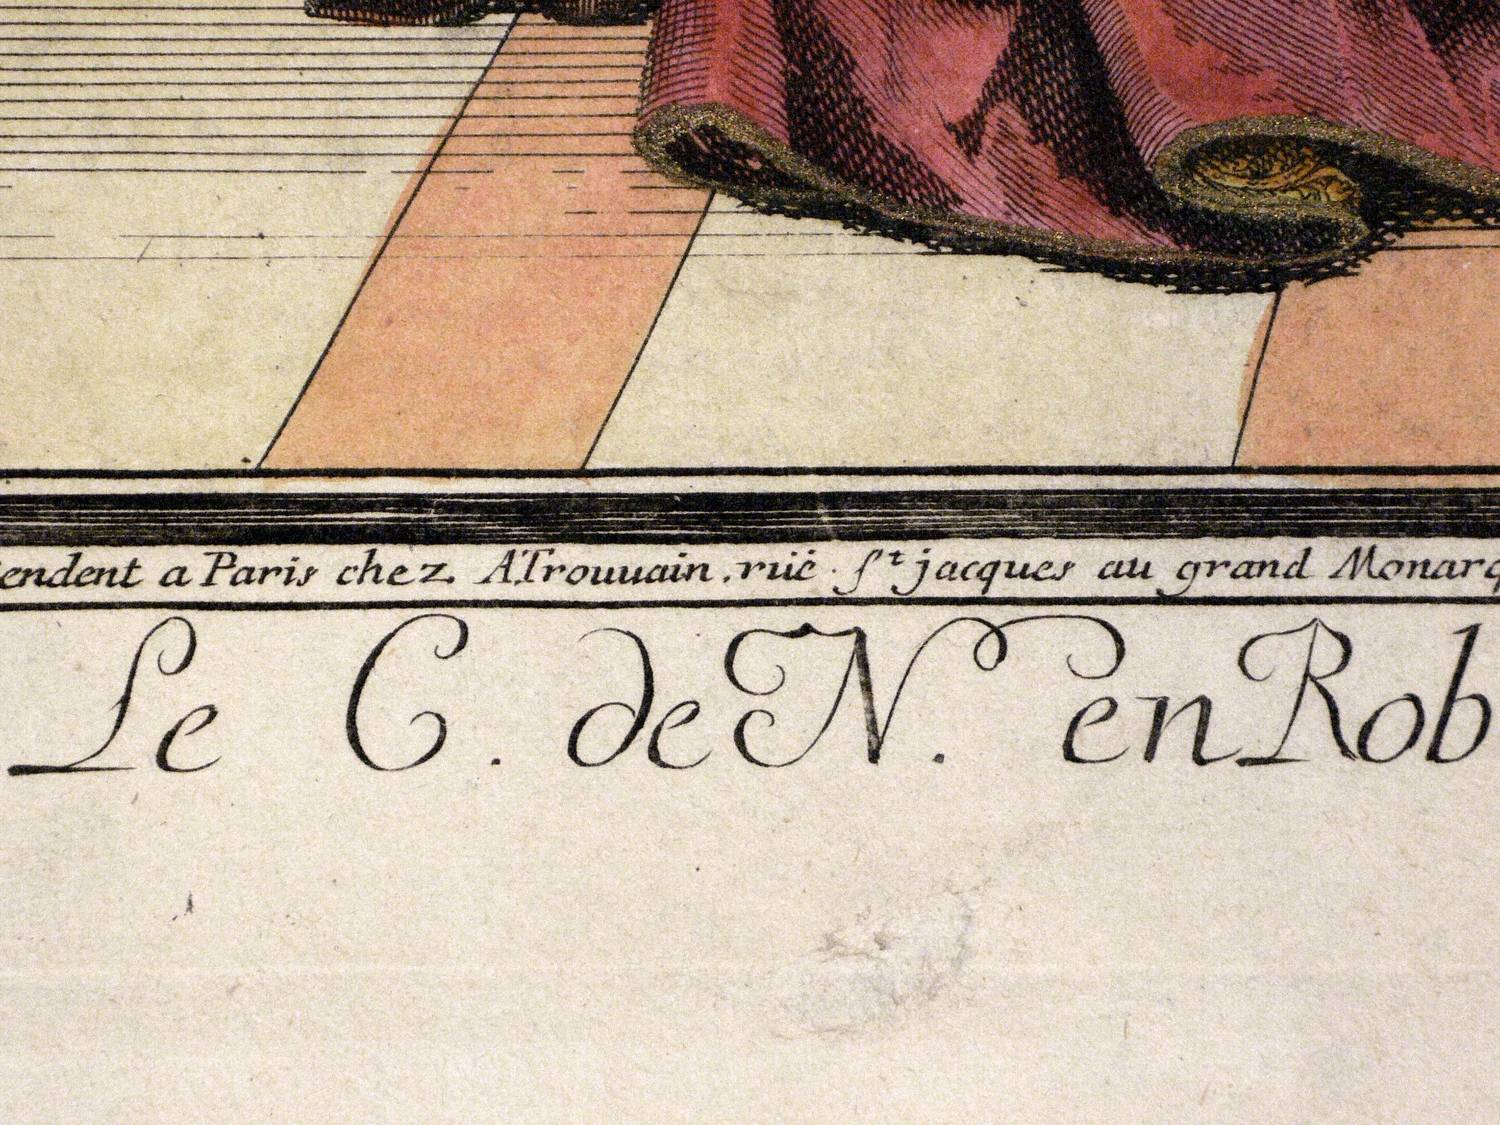 endent a Paris chez A.Trouuain.rüe.St jacques au grand Monarq
Le C. de N. en Rob